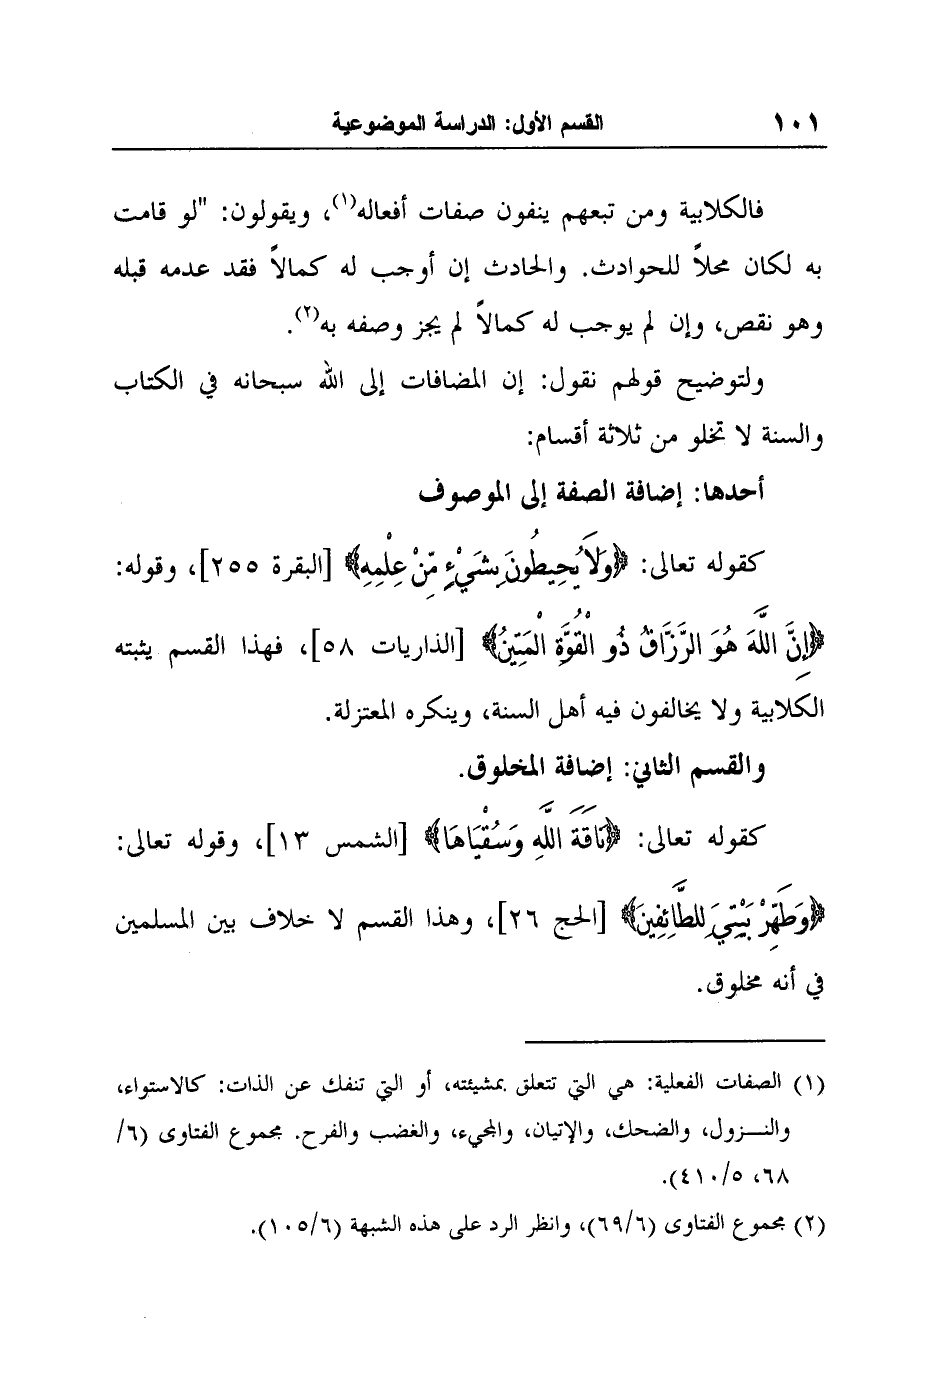 ١٠١ القسم الأول: الدراسة الموضوعية
فالكلابية ومن تبعهم ينفون صفات أفعاله(١)، ويقولون: "لو قامت
به لكان محلاً للحوادث. والحادث إن أوجب له كمالاً فقد عدمه قبله
وهو نقص، وإن لم يوجب له كمالاً لم يجز وصفه به(٢).
ولتوضيح قولهم نقول: إن المضافات إلى الله سبحانه في الكتاب
والسنة لا تخلو من ثلاثة أقسام:
أحدها: إضافة الصفة إلى الموصوف
كقوله تعالى: ﴿وَلَا يُحِيطُونَ بِشَيْءٍ مِّنْ عِلْمِهِ﴾ [البقرة ٢٥٥]، وقوله:
﴿إِنَّ اللَّهَ هُوَ الرَّزَّاقُ ذُو الْقُوَّةِ الْمَتِينُ﴾ [الذاريات ٥٨]، فهذا القسم يثبته
الكلابية ولا يخالفون فيه أهل السنة، وينكره المعتزلة.
والقسم الثاني: إضافة المخلوق.
كقوله تعالى: ﴿نَاقَةَ اللَّهِ وَسُقْيَاهَا﴾ [الشمس ١٣]، وقوله تعالى:
﴿وَطَهِّرْ بَيْتِيَ لِلطَّائِفِينَ﴾ [الحج ٢٦]، وهذا القسم لا خلاف بين المسلمين
في أنه مخلوق.
(١) الصفات الفعلية: هي التي تتعلق بمشيئته، أو التي تنفك عن الذات: كالاستواء،
والنـــزول، والضحك، والإتيان، والمجيء، والغضب والفرح. مجموع الفتاوى (٦/
٦٨، ٤١٠/٥).
(٢) مجموع الفتاوى (٦٩/٦)، وانظر الرد على هذه الشبهة (١٠٥/٦).